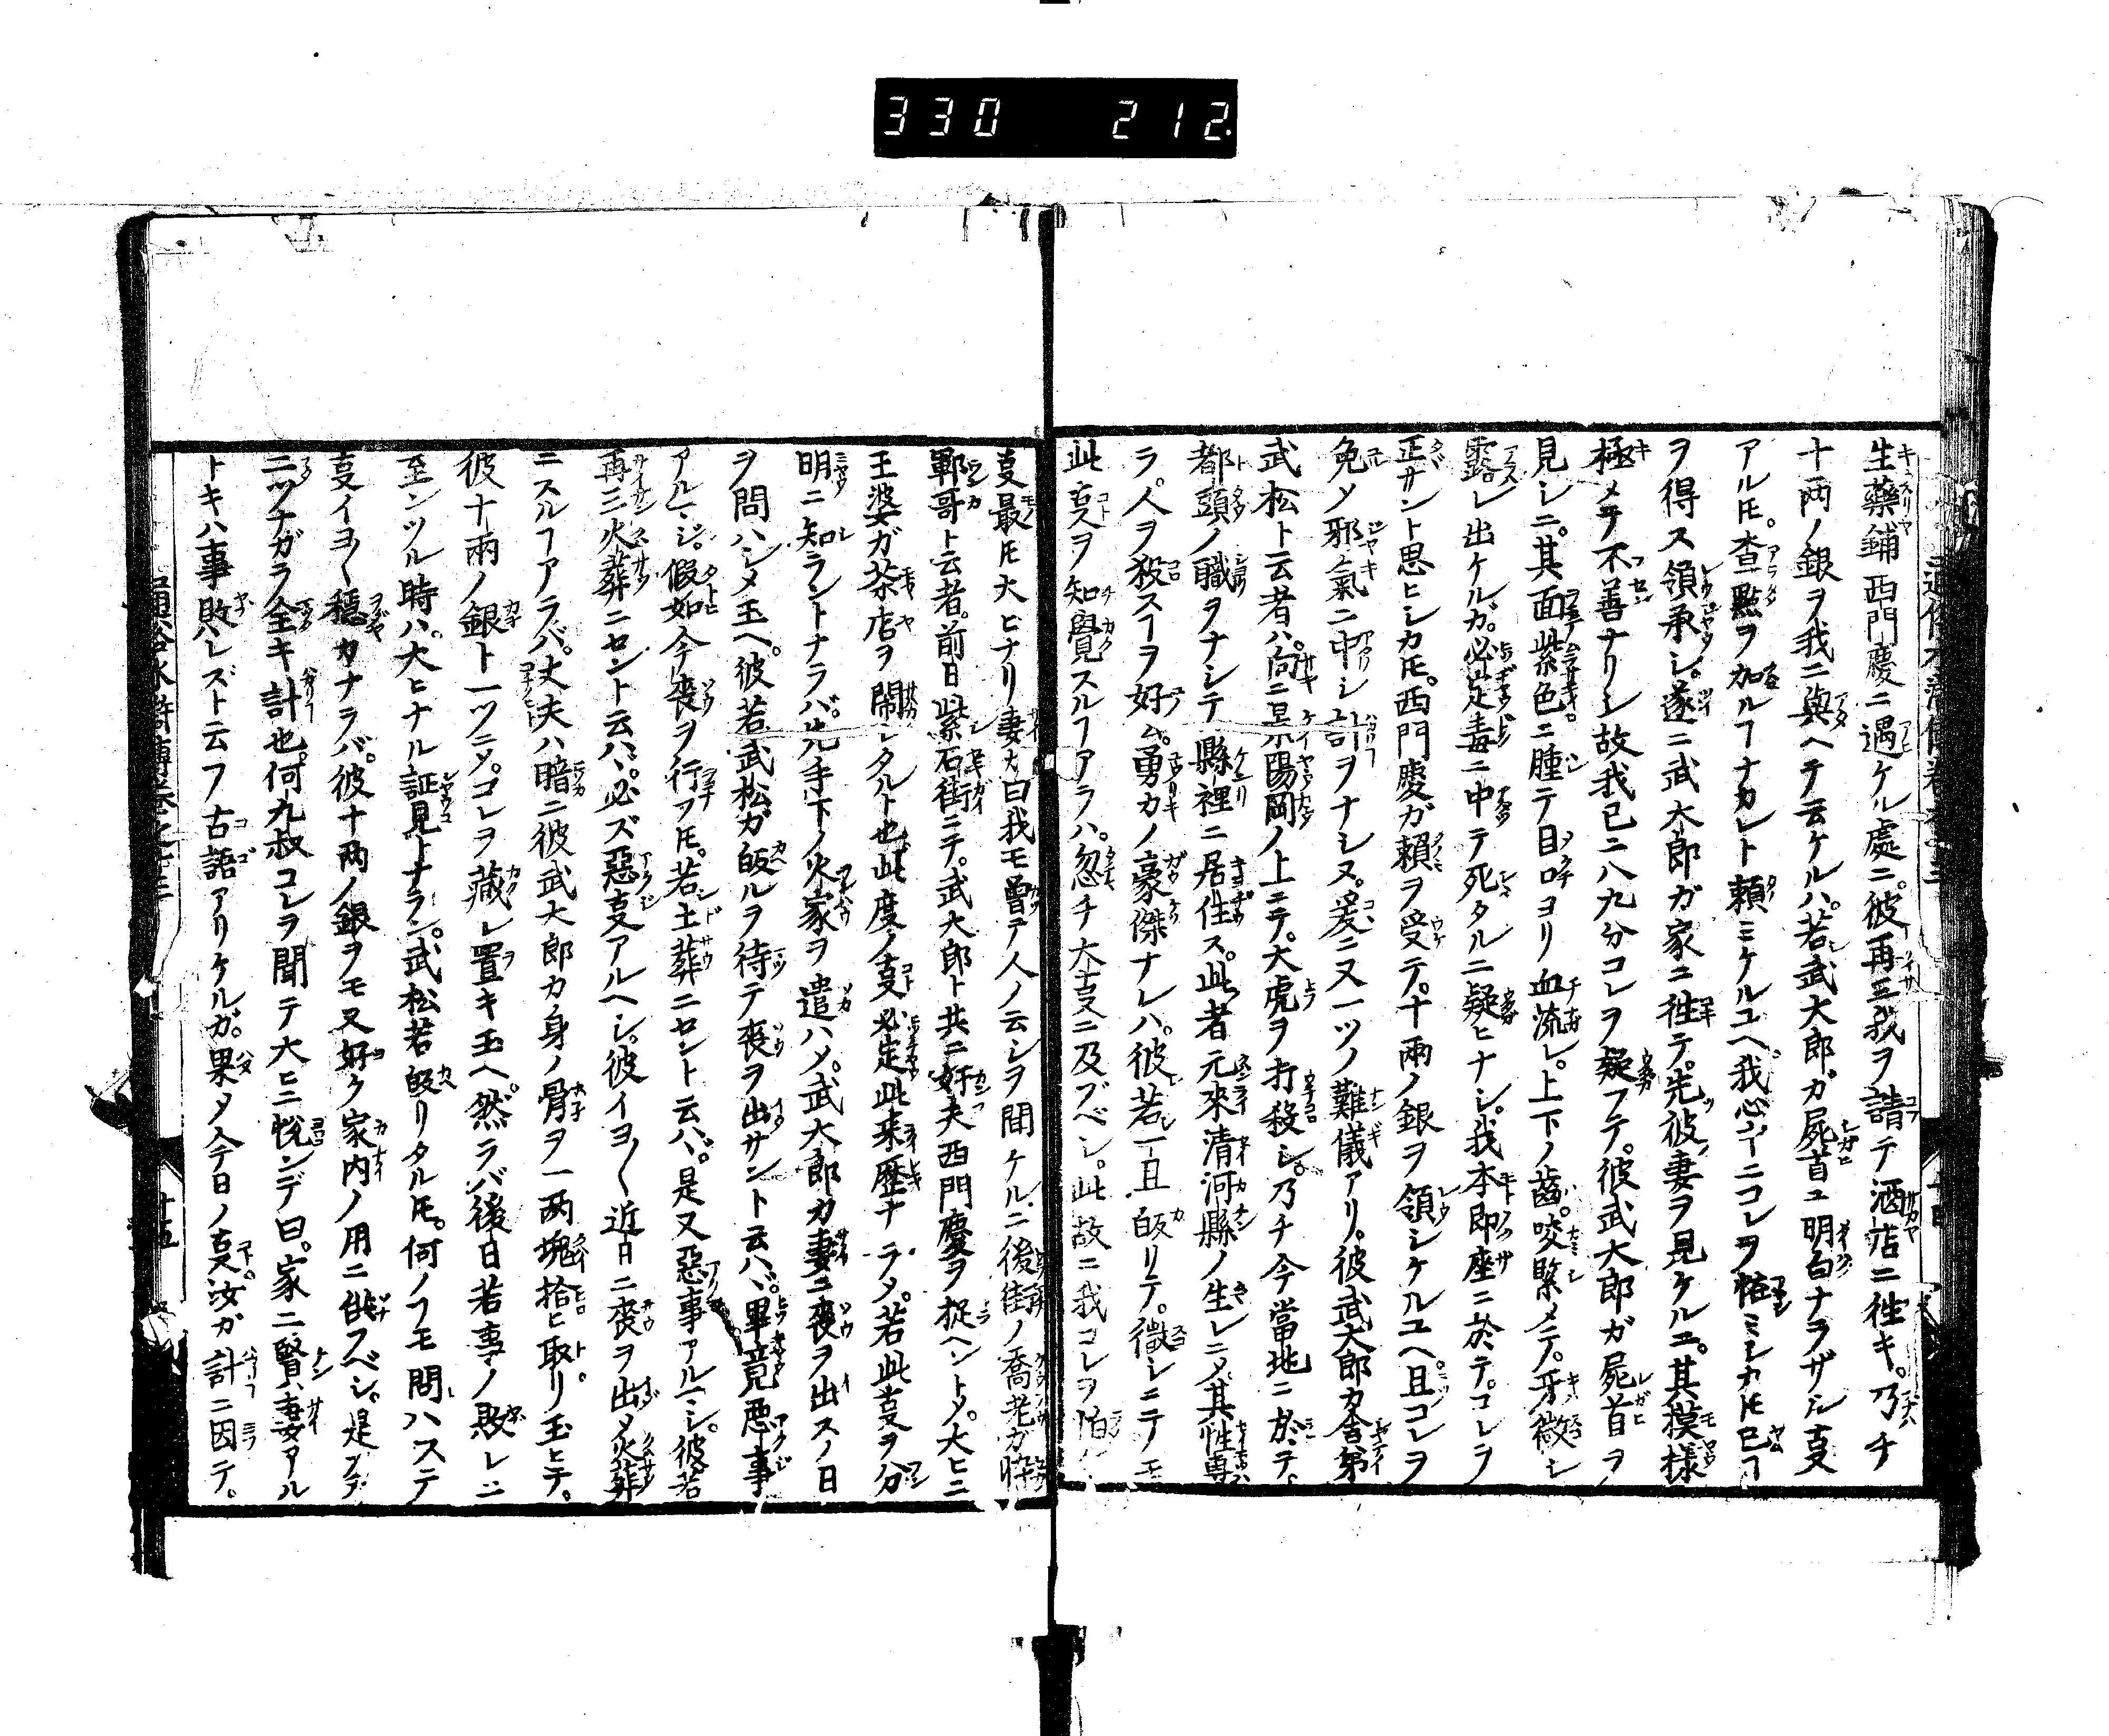 330 212
生藥鋪西門慶ニ遇ケル處ニ。彼再三我ヲ請テ酒店ニ往キ。乃チ
十両ノ銀ヲ我ニ與ヘテ云ケルハ。若武大郎ガ屍首ユ明白ナラザル㕝
アル𪜈。査㸃ヲ加ルヿナカレト頼ミケルユヘ我心中ニコレヲ恠ミシカ𪜈已ヿ
ヲ得ス領承シ。遂ニ武大郎ガ家ニ往テ。先彼妻ヲ見ケルニ。其摸様
極メテ不善ナリシ故我已ニ八九分コレヲ疑フテ。彼武大郎ガ屍首ヲ
見シニ。其面紫色ニ腫テ目口ヨリ血流レ。上下ノ齒。咬緊メテ。牙微シ
露レ出ケルガ。必定毒ニ中テ死タルニ疑ヒナシ。我本即座ニ於テ。コレヲ
正サント思ヒシカ𪜈。西門慶ガ頼ヲ受テ。十兩ノ銀ヲ領シケルユヘ。且コレヲ
免メ邪氣ニ中シ計ヲナシヌ。爰ニ又一ツノ難儀アリ。彼武大郎カ舎弟
武松ト云者ハ。向ニ景陽岡ノ上ニテ。大虎ヲ打殺シ。乃チ今當地ニ於テ。
都頭ノ職ヲナシテ縣裡ニ居住ス。此者元來清河縣ノ生レニメ。其性專
ラ人ヲ殺スヿヲ好ム。勇力ノ豪傑ナレハ。彼若一旦皈リテ。微シニテモ
此㕝ヲ知覺スルヿアラハ。忽チ大㕝ニ及ブベシ。此故ニ我コレヲ怕
㕝最𪜈大ヒナリ妻又曰我モ曾テ人ノ云シヲ聞ケルニ後街ノ喬老カ
鄆哥ト云者。前日紫石街ニテ。武大郎ト共ニ奸夫西門慶ヲ捉ヘントメ。大ヒニ
王婆ガ茶店ヲ閙シタルト也此度ノ㕝必定此来歴ナラメ。若此㕝ヲ分
明ニ知ラントナラバ。先手下ノ火家ヲ遣ハメ。武大郎カ妻ニ喪ヲ出スノ日
ヲ問ハシメ玉ヘ。彼若武松ガ皈ルヲ待テ喪ヲ出サント云ハヾ。畢竟悪事
アルマシ。假如今喪ヲ行フ𪜈。若土葬ニセント云ハヾ。是又惡事アルマシ。彼若
再三火葬ニセント云ハヾ。必ズ惡㕝アルヘシ。彼イヨ〱近日ニ喪ヲ出メ火葬
ニスルヿアラバ。丈夫ハ暗ニ彼武大郎カ身ノ骨ヲ一両塊拾ヒ取リ玉ヒテ。
彼十兩ノ銀ト一ツニメ。コレヲ藏レ置キ玉ヘ然ラバ後日若事ノ敗レニ
至ンツル時ハ。大ヒナル証見トナラン。武松若皈リタル𪜈。何ノヿモ問ハステ
㕝イヨ〱穏カナラバ。彼十両ノ銀ヲモ又好ク家内ノ用ニ供フベシ。是
ニツナガラ全キ計也。何九叔コレヲ聞テ大ヒニ悦ンデ曰。家ニ賢妻アル
トキハ事敗レズト云フ古語アリケルガ。果メ今日ノ㕝汝カ計ニ因テ。